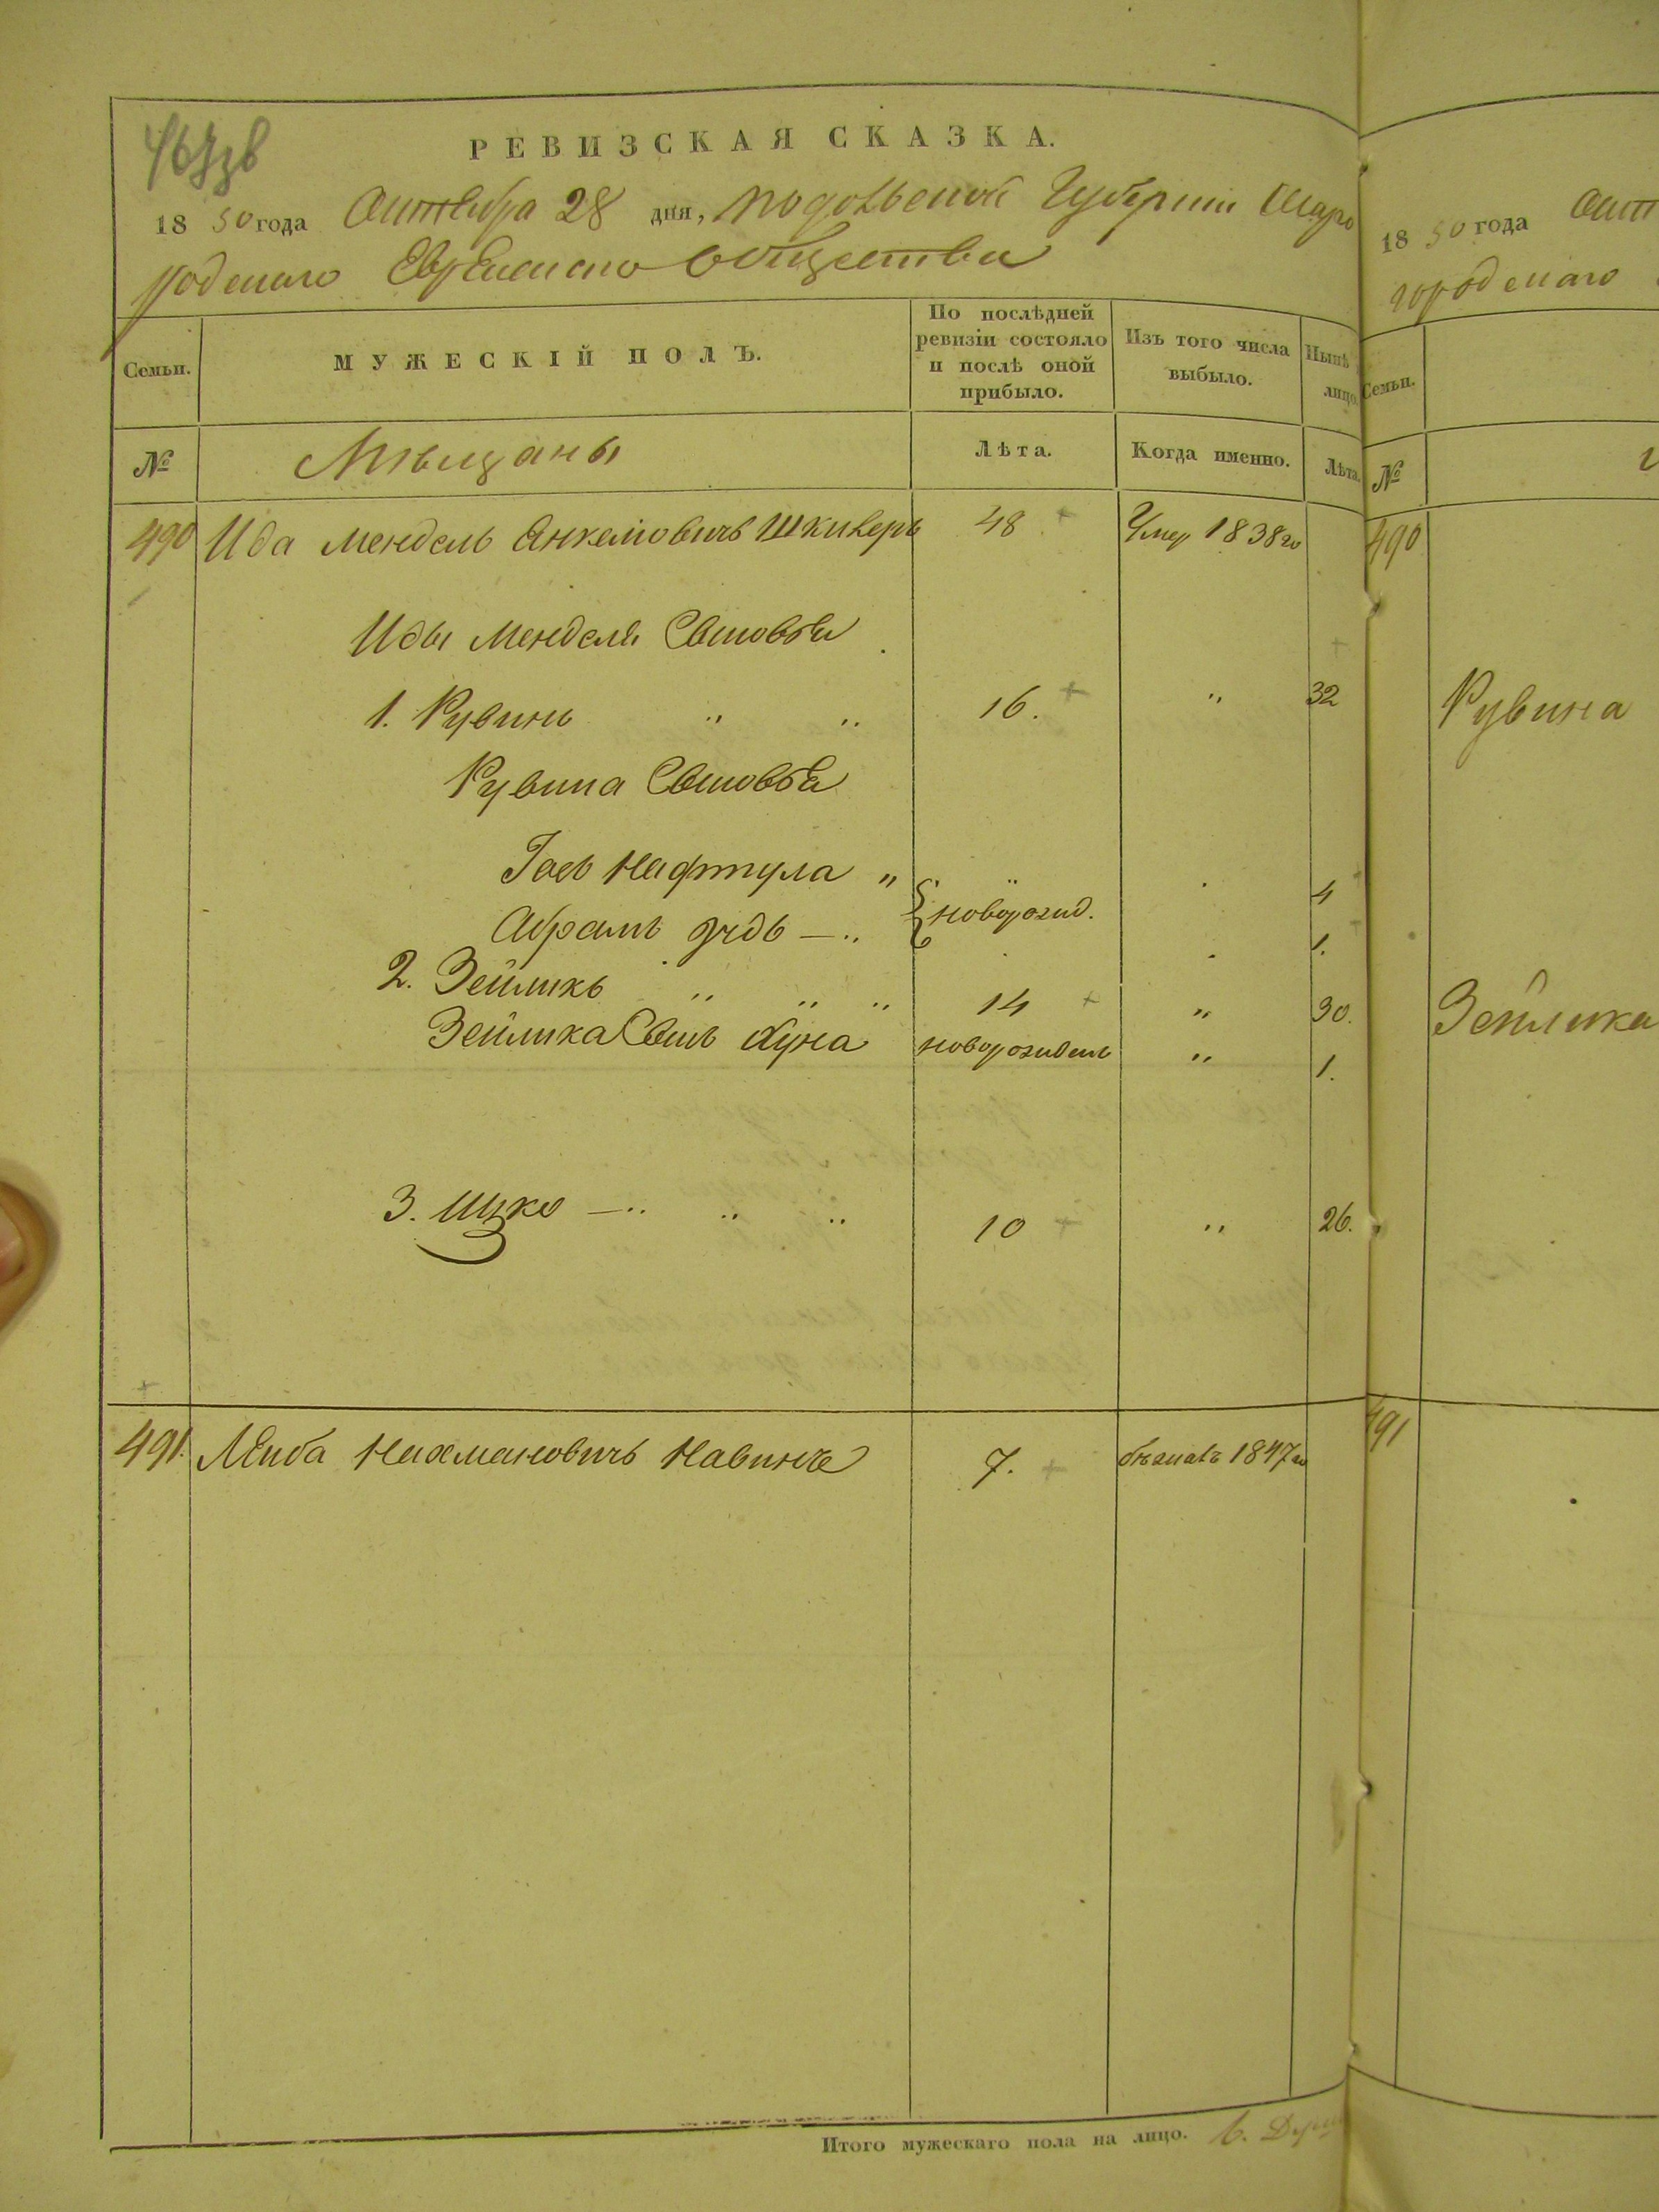 РЕВИЗСКАЯ СКАЗКА.
1850 года Октября 28 дня, Подольской Губернии Шаро
родскаго Еврейскаго Общества
Семьи.
МУЖЕСКІЙ ПОЛЪ.
По послѣдней ревизіи состояло и послѣ оной прибыло.
Изъ того числа выбыло.
Нынѣ на лицо.
№ Мѣщаны Лѣта. Когда именно. Лѣта.
490 Ида Мендель Анкелювичъ Шкиверъ 48 Умер 1838го
Иды Менделя Сыновья
1. Рувинъ " " 16. " 32
Рувина Сыновья
Іось Нафтула " 4
новорожд.
Абрамъ — " 1.
2. Зейликъ " " " 14 " 30.
Зейлика Сынъ Хуна новорожден " 1.
3. Ицко — " " " 10 " 26.
491. Лейба Нахмановичъ 7. бѣжалъ 1847го
Итого мужескаго пола на лицо. 6. Душ
1850 года Окт
городскаго
Семьи.
№
490
Рувина
Зейлика
491